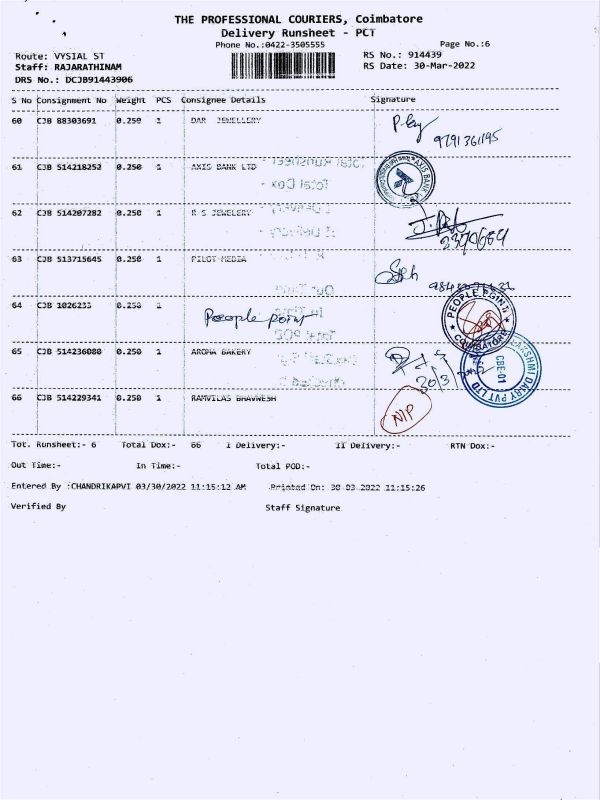 THE PROFESSIONAL COURIERS, Coimbatore
Delivery Runsheet - PCT
Phone No.:0422-3505555
Page No.:6
Route: VYSIAL ST
RS No.: 914439
Staff: RAJARATHINAM
RS Date: 30-Mar-2022
DRS No.: DCJB91443906
S No Consignment No Weight PCS Consignee Details Signature
60 CJB 88303691 0.250 1 DAR JEWELLERY
9791361195
61 CJB 514218252 0.250 1 AXIS BANK LTD
AXIS BANK
62 CJB 514207282 0.250 1 R S JEWELERY
63 CJB 513715645 0.250 1 PILOT MEDIA
64 CJB 1026233 0.250 1 People point
PEOPLE POINT
COIMBATORE
65 CJB 514236080 0.250 1 AROMA BAKERY
LAKSHMI DAIRY PVT LTD
CBE-01
66 CJB 514229341 0.250 1 RAMVILAS BHAVNESH
NIP
Tot. Runsheet:- 6 Total Dox:- 66 I Delivery:- II Delivery:- RTN Dox:-
Out Time:- In Time:- Total POD:-
Entered By :CHANDRIKAPVI 03/30/2022 11:15:12 AM Printed On: 30-03-2022 11:15:26
Verified By Staff Signature